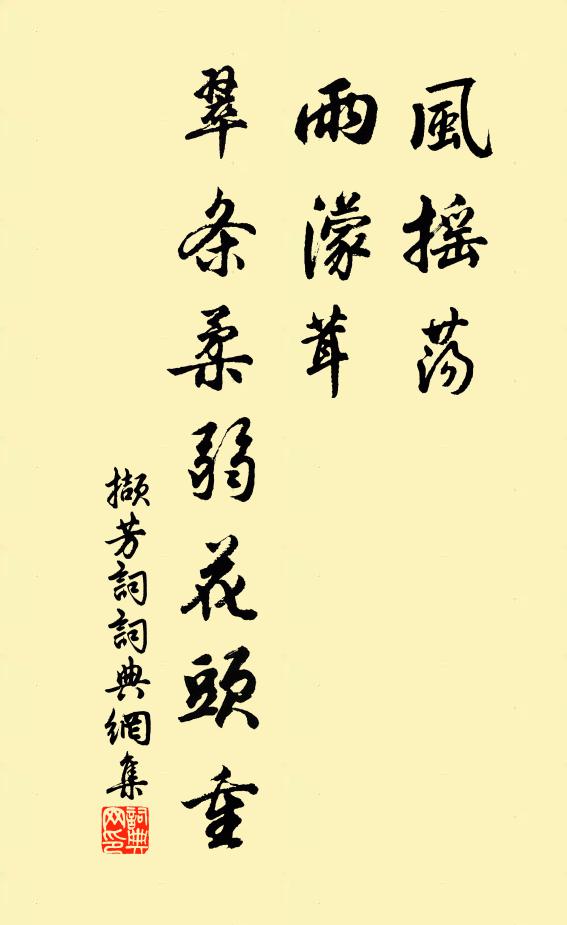 風搖荡
雨濛茸
翠条柔弱花頭重
擷芳詞詞典網集
詞典
网印